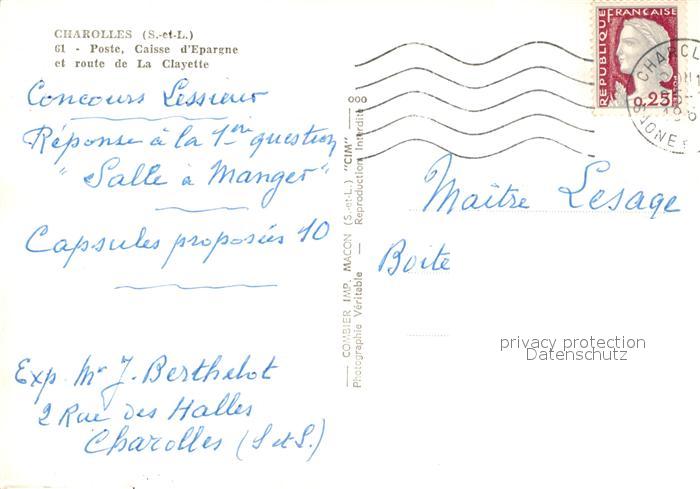 CHAROLLES (S.-et-L.)
61 - Poste, Caisse d'Epargne
et route de La Clayette
Concours Lessieur
Réponse à la 1ère question
"Salle à Manger"
Capsules proposées 10
Exp. Mr J. Berthelot
2 Rue des Halles
Charolles (S et L.)
COMBIER IMP. MACON (S.-et-L.) "CIM"
Photographie Véritable — Reproduction Interdite
REPUBLIQUE FRANÇAISE
0,25
Maître Lesage
Boite
privacy protection
Datenschutz